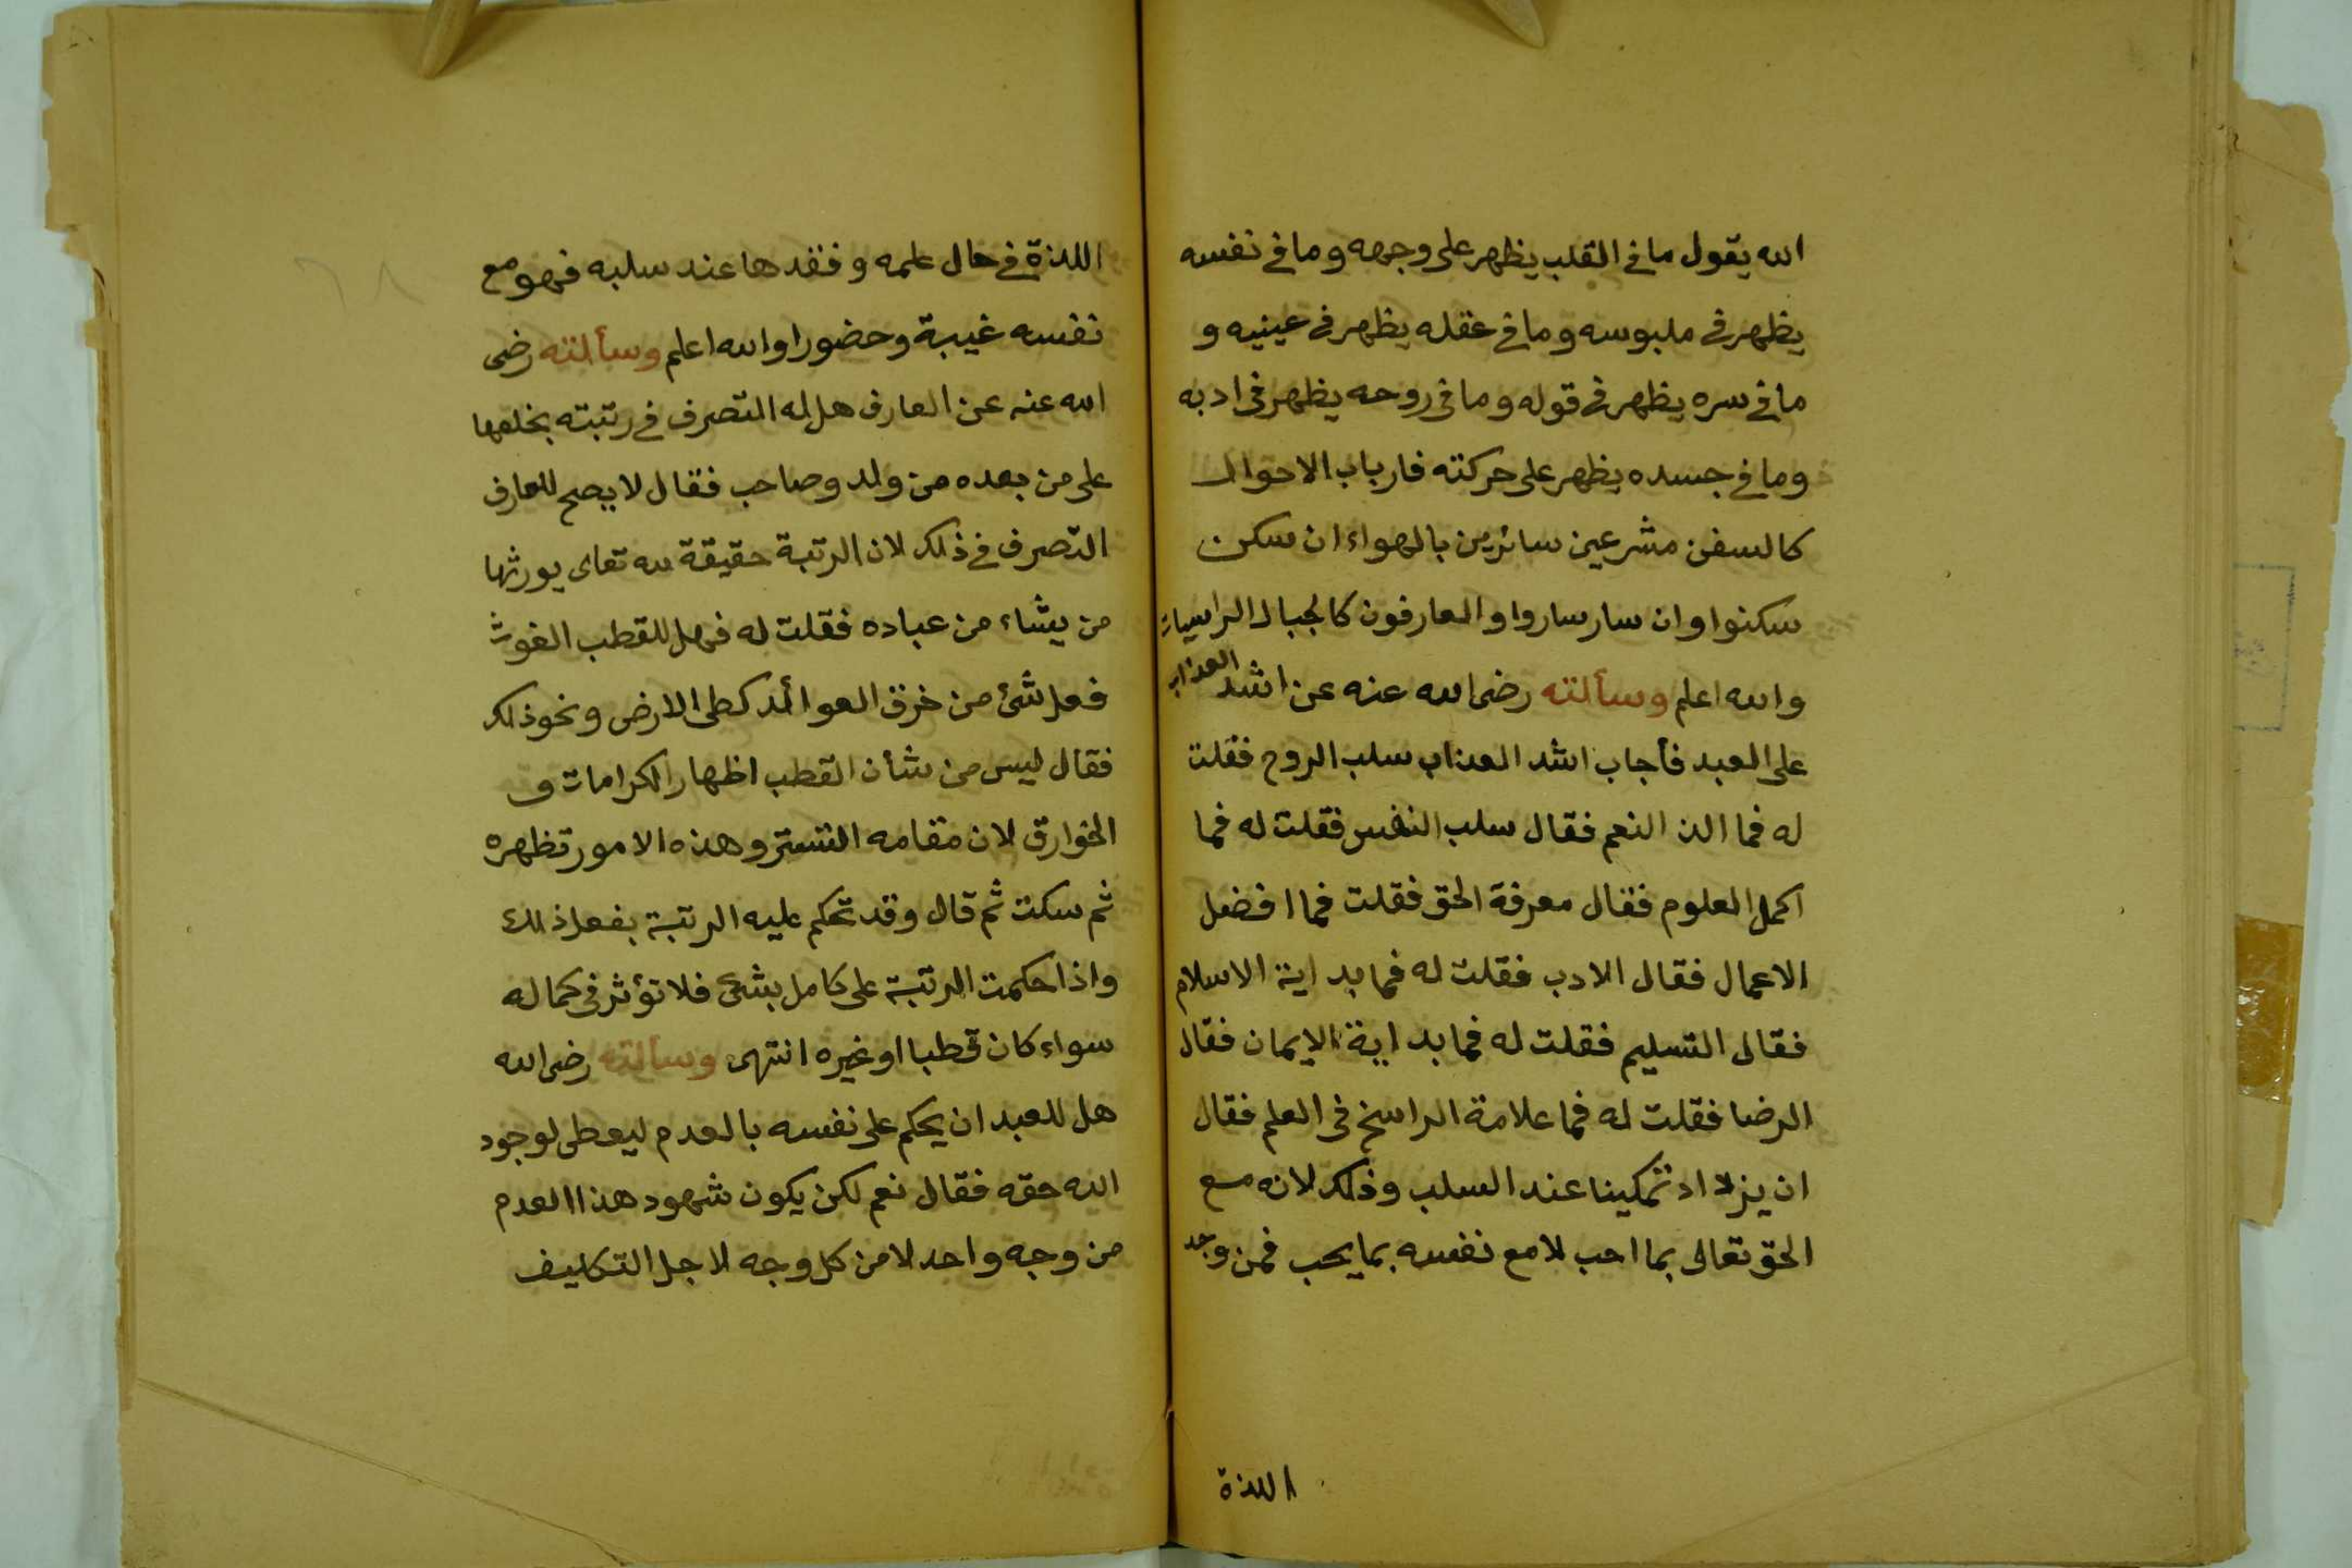 الله يقول ما في القلب يظهر على وجهه وما في نفسه
يظهر في ملبوسه وما في عقله يظهر في عينيه و
ما في سره يظهر في قوله وما في روحه يظهر في ادبه
وما في جسده يظهر على حركته فارباب الاحوال
كالسفن مشرعين سائرين بالهواء ان سكن
سكنوا وان سار ساروا والعارفون كالجبال الراسيات
والله اعلم وسألته رضى الله عنه عن اشد العذاب
على العبد فأجاب اشد العذاب سلب الروح فقلت
له فما الذ النعم فقال سلب النفس فقلت له فما
اكمل العلوم فقال معرفة الحق فقلت فما افضل
الاعمال فقال الادب فقلت له فما بداية الاسلام
فقال التسليم فقلت له فما بداية الايمان فقال
الرضا فقلت له فما علامة الراسخ في العلم فقال
ان يزداد تمكينا عند السلب وذلك لانه مع
الحق تعالى بما احب لا مع نفسه بما يحب فمن وجد
اللذة
اللذة في حال علمه وفقدها عند سلبه فهو مع
نفسه غيبة وحضورا والله اعلم وسألته رضى
الله عنه عن العارف هل له التصرف في رتبته بخلعها
على من بعده من ولد وصاحب فقال لا يصح للعارف
التصرف في ذلك لان الرتبة حقيقة لله تعالى يورثها
من يشاء من عباده فقلت له فهل للقطب الغوث
فعل شئ من خرق العوائد كطى الارض ونحو ذلك
فقال ليس من شأن القطب اظهار الكرامات و
الخوارق لان مقامه التستر وهذه الامور تظهره
ثم سكت ثم قال وقد تحكم عليه الرتبة بفعل ذلك
واذا حكمت الرتبة على كامل بشئ فلا تؤثر في كماله
سواء كان قطبا او غيره انتهى وسألته رضى الله
هل للعبد ان يحكم على نفسه بالعدم ليعطى لوجود
الله حقه فقال نعم لكن يكون شهود هذا العدم
من وجه واحد لا من كل وجه لاجل التكليف